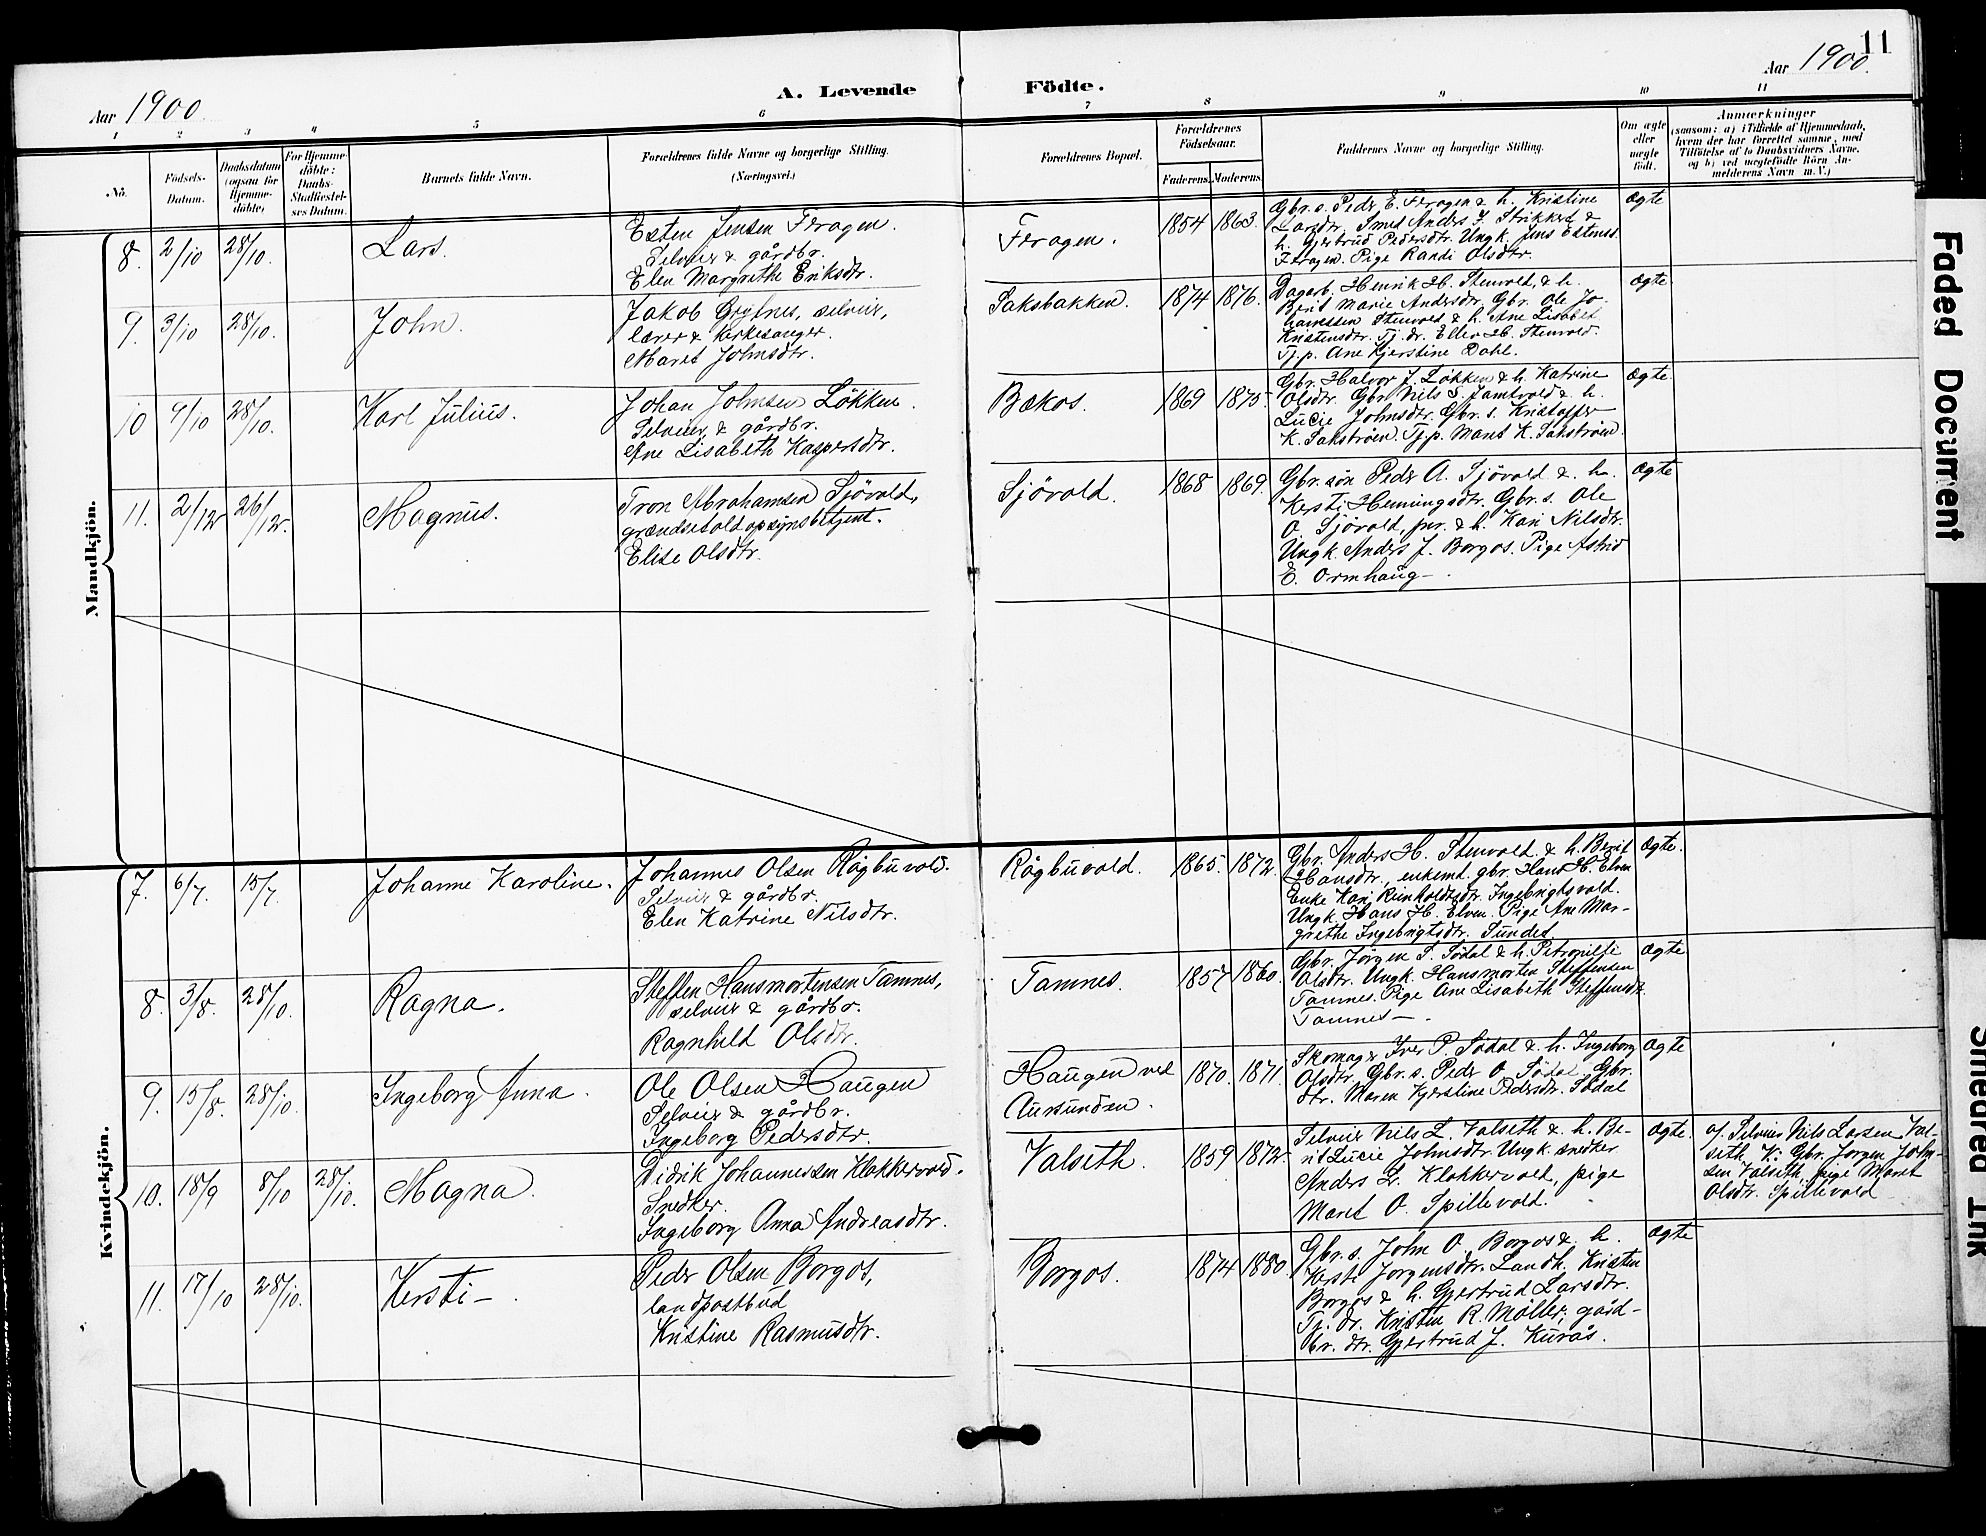 11
Aar 1900. A. Levende Födte. Aar 1900.
1 2 3 4 5 6 7 8 9 10 11
No.
Födsels-
Datum.
Daabsdatum
(ogsaa for
Hjemme-
döbte)
For Hjemme-
döbte:
Daabs-
Stadfæstel-
ses Datum.
Barnets fulde Navn.
Forældrenes fulde Navne og borgerlige Stilling.
(Næringsvei.)
Forældrenes Bopæl.
Forældrenes
Födselsaar.
Faderens. Moderens.
Faddernes Navne og borgerlige Stilling.
Om ægte
eller
uægte
födt.
Anmærkninger
(saasom: a) i Tilfælde af Hjemmedaab,
hvem der har forrettet samme, med
Tilföielse af to Daabsvidners Navne,
og b) ved uegtefödte Börn An-
melderens Navn m. V.)
Mandkjön.
8. 2/10 28/10. Lars.
Esten Jensen Feragen.
Selveier & gårdbr.
Elen Margrethe Eriksdtr.
Feragen. 1854 1863.
Gbr. s. Peder E. Feragen & h. Kristine
Larsdtr, Smed Anders J. Strikkert &
h. Gjertrud Pedersdtr. Ungk. Jens Estenss.
Feragen. Pige Randi Olsdtr.
Ægte
9. 3/10 28/10. John.
Jakob Grytnes, selveier,
lærer & kirkesanger.
Maret Johnsdtr.
Saksbakken. 1874 1876.
Dagarb. Henrik H. Stenvold, & h.
Berit Marie Andersdtr. Gbr. Ole Jo-
hannessen Stenvold & h. Ane Lisabet
Kristensdtr. Tj. dr. Ellen H. Stenvold.
Tj.p. Ane Kjerstine Dahl.
Ægte
10 9/10 28/10. Karl Julius.
Johan Johnsen Løkken.
Selveier & gårdbr.
Ane Lisabeth Kaspersdtr.
Bækos. 1869 1875.
Gbr. Halvor J. Løkken & h. Katrine
Olsdtr. Gbr Nils S. Jamtvold & h.
Lucie Johnsdtr. Gbr. s. Kristoffer
K. Sakstrøen. Tj.p. Maret K. Sakstrøen.
Ægte.
11. 2/12 26/12. Magnus.
Tron Abrahamsen Sjövold,
grændsetoldopsynsbetjent.
Elise Olsdtr.
Sjövold. 1868 1869.
Gbr. søn Peder A. Sjövold & h.
Kersti Henningsdtr. Gbr. s. Ole
O. Sjövold, jnr. & h. Kari Nilsdtr.
Ungk. Anders J. Borgos. Pige Astrid
E. Ormhaug.
Ægte
Kvindekjön.
7. 6/7. 15/7. Johanne Karoline.
Johannes Olsen Rågbuvold.
Selveier & gårdbr.
Elen Katrine Nilsdtr.
Rågbuvold. 1865. 1872.
Gbr. Anders H. Stenvold. & h. Berit
Hansdtr., enkemd. gbr. Hans H. Elven
Enke Kari Reinholdtsdtr. Ingebrigtsvold.
Ungk. Hans H. Elven. Pige Ane Mar-
grethe Ingebrigtsdtr. Sundet.
Ægte.
8. 3/8. 28/10. Ragna.
Steffen Hansmortensen Tamnes,
selveier & gårdbr.
Ragnhild Olsdtr.
Tamnes. 1857 1860.
Gbr. Jörgen S. Södal & h. Petronille
Olsdtr. Ungk. Hansmorten Steffensen
Tamnes. Pige Ane Lisabeth Steffensdtr.
Tamnes.
Ægte
9. 15/8. 28/10. Ingeborg Anna.
Ole Olsen Haugen
Selveier & gårdbr.
Ingeborg Pedersdtr.
Haugen ved
Aursunden. 1870. 1871.
Skomager Iver P. Södal & h. Ingeborg
Olsdtr. Gbr. s. Peder O. Södal. Gbr.
dtr. Maren Kjerstine Pedersdtr. Södal
Ægte
10. 18/9 8/10 28/10. Magna.
Didrik Johannessen Klokkervold.
Snedker.
Ingeborg Anna Andreasdtr.
Valseth. 1859 1872.
Selveier Nils L. Valseth & h. Be-
rit Lucie Johnsdtr. Ungk. snedker
Anders L. Klokkervold, pige
Maret O. Spillevold.
Ægte.
a/. Selveier Nils Larsen Val-
seth. V.: Gbr. Jörgen John-
sen Valseth, pige Maret
Olsdtr. Spillevold
11. 17/10 28/10. Kersti
Peder Olsen Borgos,
landpostbud
Kristine Rasmusdtr.
Borgos. 1874 1880.
Gbr. s. John O. Borgos & h.
Kersti Jörgensdtr. Landh. Kristen
Borgos & h. Gjertrud Larsdtr.
Tj. dr. Kristen R. Möller, gård-
br. dtr. Gjertrud J. Kurås.
Ægte
Faded Document
Smeared Ink